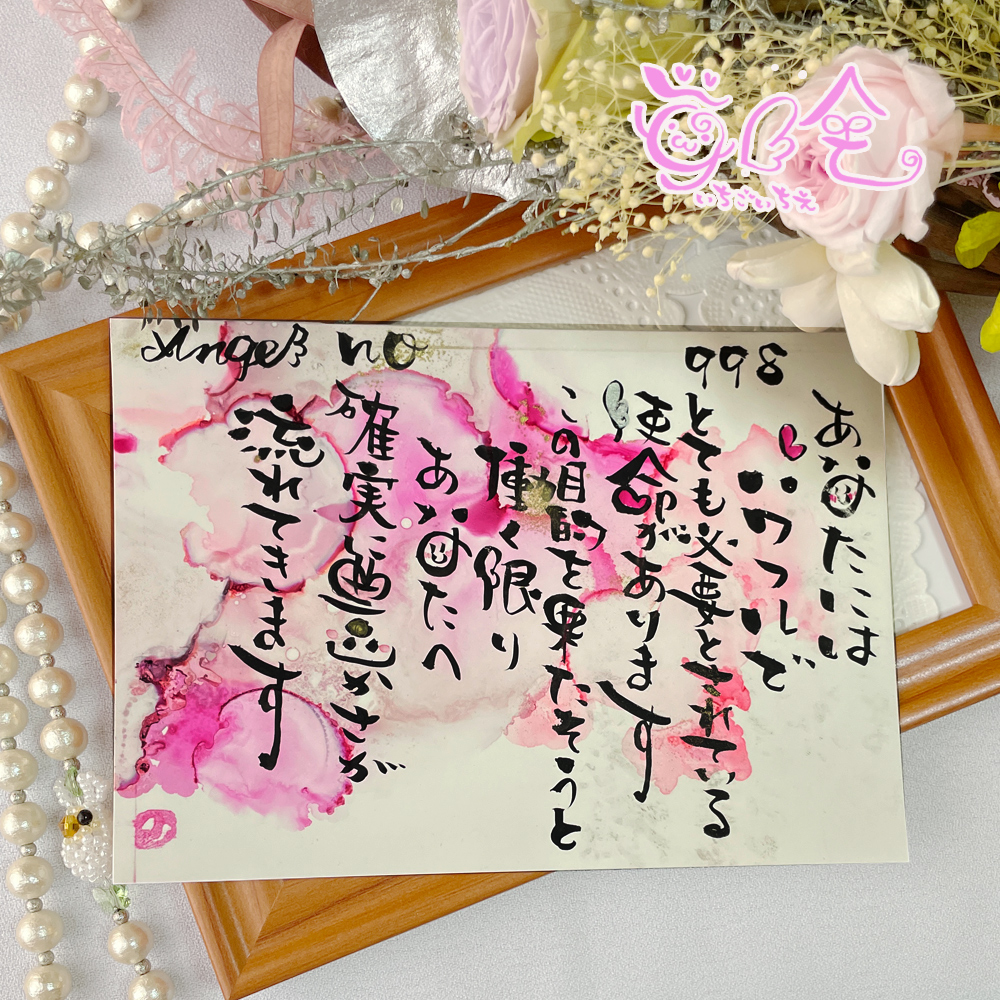 いちごいちえ
Angel no 998
あなたには
パワフルで
とても必要とされている
使命があります
この目的を果たそうと
働く限り
あなたへ
確実に豊かさが
流れてきます
の